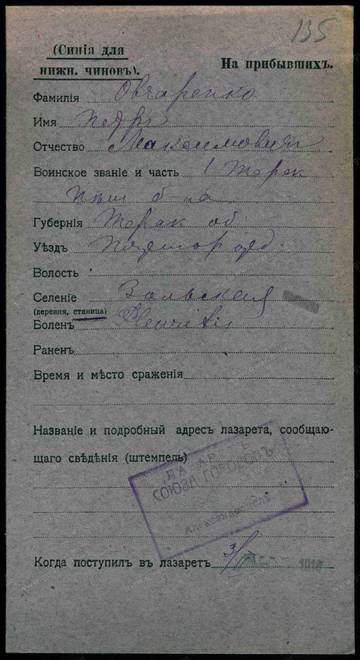 135
(Синія для
нижн. чиновъ).
На прибывшихъ.
Фамилія Овчаренко
Имя Петръ
Отчество Максимовичъ
Воинское званіе и часть 1 Терек
Губернія Терск об.
Уѣздъ
Волость
Селеніе Зольская
(деревня, станица)
Боленъ Pleuritis
Раненъ
Время и мѣсто сраженія
Названіе и подробный адресъ лазарета, сообщаю-
щаго свѣдѣнія (штемпель)
ЛАЗАР
СОЮЗА ГОРОДОВЪ
Когда поступилъ въ лазаретъ 3/